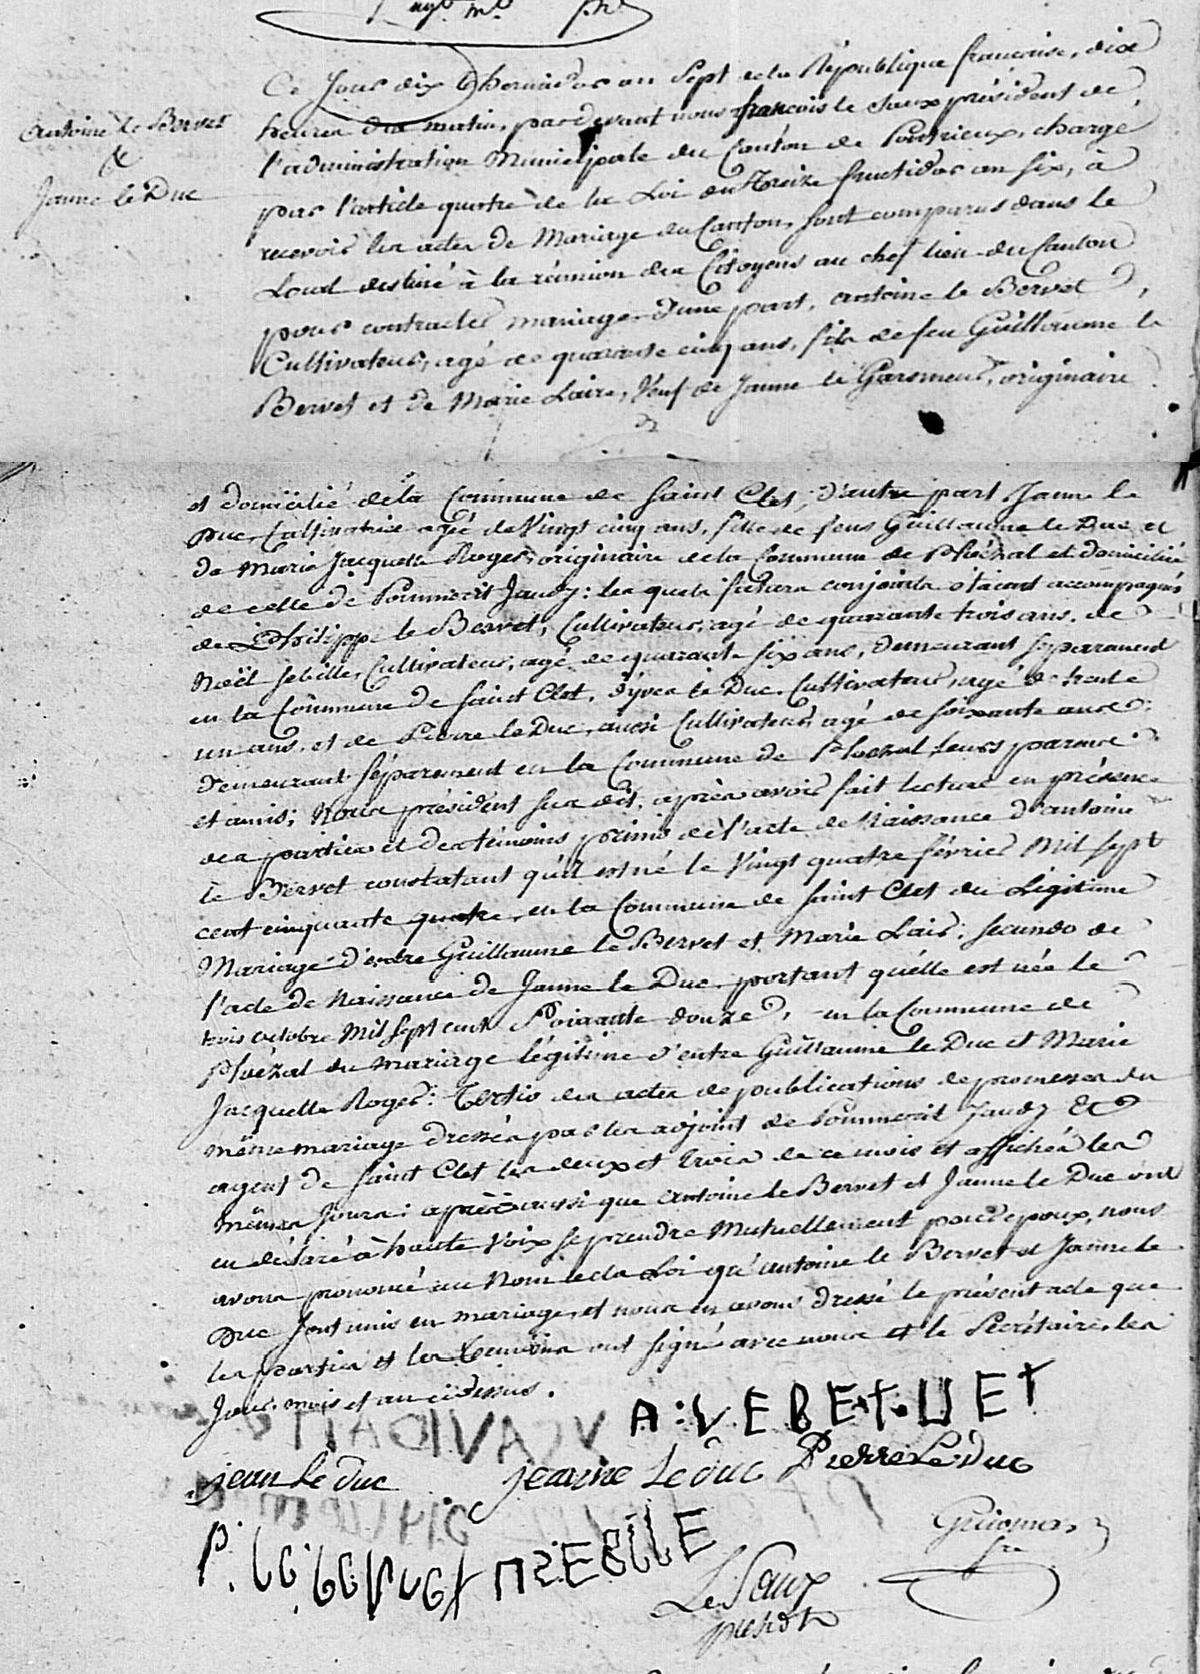 Antoine le Bervet
&
Janne le Duc
Ce Jour dix thermidor an Sept de la République francoise, dix
heures du matin, pardevant nous francois le saux président de
l'administration Municipale du Canton de Pontrieux, chargé
par l'article quatre de la Loi du Treize fructidor an six, à
recevoir les actes de Mariage du Canton, sont comparus dans le
Local destiné à la réunion des Citoyens au chef lieu du Canton
pour contracter mariage d'une part, antoine le Bervet,
Cultivateur, agé de quarante cinq ans, fils de feu Guillaume le
Bervet et de Marie Laire, Veuf de Janne le Garsmeur, originaire
et domicilié de la Commune de Saint Clet, d'autre part Janne le
Duc, Cultivatrice agée de Vingt cinq ans, fille de feus Guillaume le Duc et
de Marie Jacquette Roger, originaire de la Commune de Ploëzal et domiciliée
de celle de Pommerit Jaudy: les quels futurs conjoints étaient accompagnés
de Philippe le Bervet, Cultivateur, agé de quarante trois ans, de
Noël sebille, Cultivateur, agé de quarante six ans, demeurant séparement
en la Commune de Saint Clet, d'yves le Duc, Cultivateur, agé de trente
un ans, et de Pierre le Duc, aussi Cultivateur, agé de soixante ans
demeurant séparement en la Commune de Ploezal leurs parens
et amis; Nous président sus dit, après avoir fait lecture en présence
des parties et des témoins primo de l'acte de Naissance d'antoine
le Bervet constatant qu'il est né le Vingt quatre février Mil sept
cent cinquante quatre, en la Commune de Saint Clet du Légitime
Mariage d'entre Guillaume le Bervet et Marie Lair: secundo de
l'acte de Naissance de Janne le Duc, portant qu'elle est née le
trois octobre Mil sept cent Soixante douze, en la Commune de
Ploëzal du mariage légitime d'entre Guillaume le Duc et Marie
Jacquette Roger: Tertio des actes de publications de promesses du
même mariage dressés par les adjoint de Pommerit Jaudy &
agent de Saint Clet les deux et trois de ce mois et affichés les
mêmes jours: après aussi que antoine le Bervet et Janne le Duc ont
eu déclaré à haute Voix se prendre Mutuellement pour époux, nous
avons prononcé au Nom de la Loi qu'antoine le Bervet et Janne le
Duc sont unis en mariage, et nous en avons dressé le présent acte que
les parties et les témoins ont signé avec nous et le Secrétaire, les
Jour, mois et an ci dessus.
A: VEBE
jean Le duc jeanne Le duc Pierre Le Duc
P. SEBILLE Guiomar
Le Saux
presdt